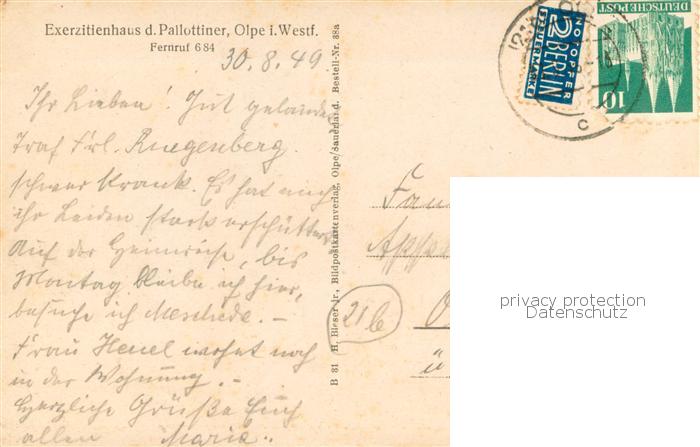 Exerzitienhaus d. Pallottiner, Olpe i. Westf.
Fernruf 684
30.8.49
Ihr Lieben! Gut gelandet
traf Frl. Ruegenberg
schwer krank. Es hat mich
ihr Leiden stark erschüttert.
Auf der Heimreise, bis
Montag bleibe ich hier,
besuche ich Meschede. –
Frau Heuel wohnt noch
in der Wohnung. –
Herzliche Grüße Euch
allen Maria.
B 81 H. Bieser Jr., Bildpostkartenverlag, Olpe/Sauerland. Bestell-Nr. 38a
NOTOPFER
2 BERLIN
STEUERMARKE
DEUTSCHE POST
10
c
Fam
21b
privacy protection
Datenschutz